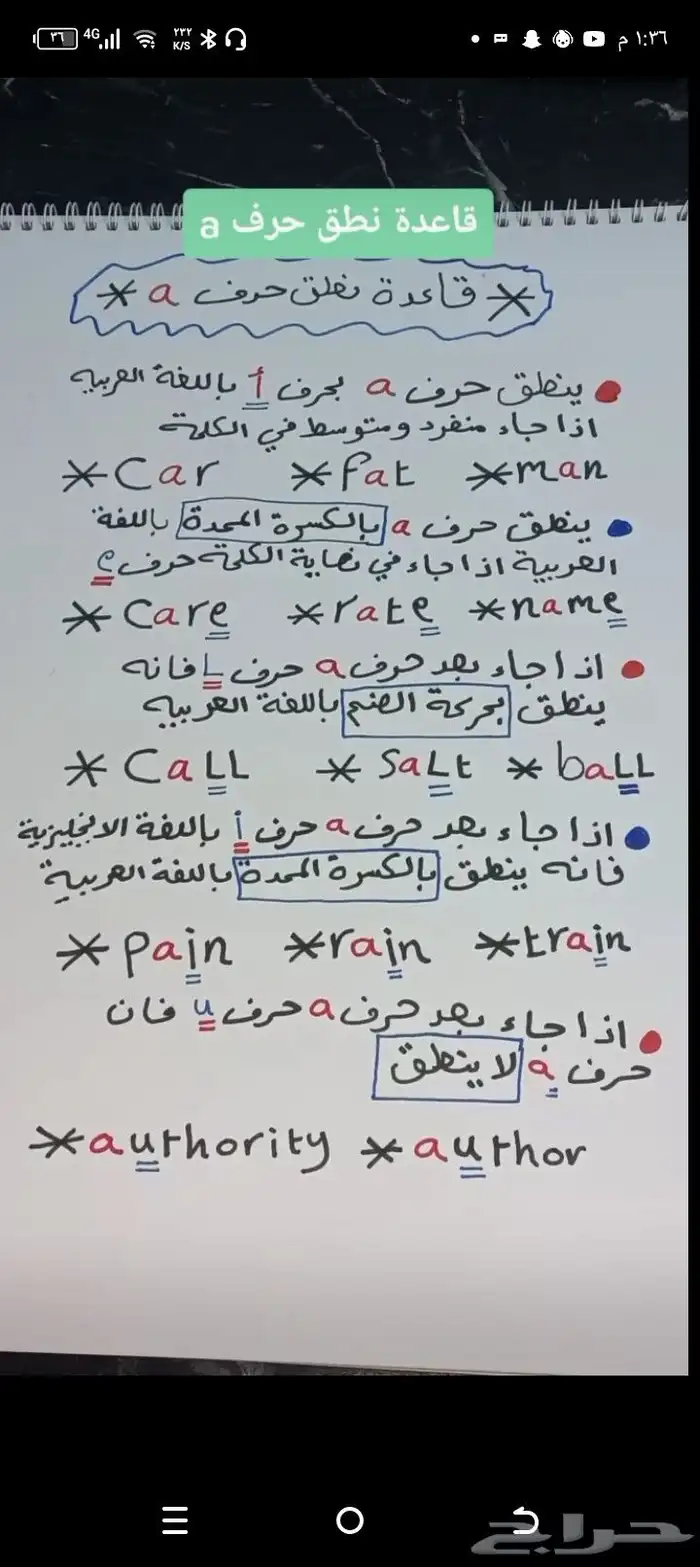 ١:٣٦ م
٢٣٢ K/S
4G
٣٦
قاعدة نطق حرف a
* قاعدة نطق حرف a *
ينطق حرف a بحرف أ باللغة العربيه
اذا جاء منفرد ومتوسط في الكلمة
*Car *fat *man
ينطق حرف a بالكسرة الممدة باللغة
العربية اذا جاء في نهاية الكلمة حرف e
*Care *rate *name
اذا جاء بعد حرف a حرف L فانه
ينطق بحركة الضم باللغة العربيه
*CaLL *SaLt *baLL
اذا جاء بعد حرف a حرف i باللغة الانجليزية
فانه ينطق بالكسرة الممدة باللغة العربية
*pain *rain *train
اذا جاء بعد حرف a حرف u فان
حرف a لا ينطق
*authority *author
حراج